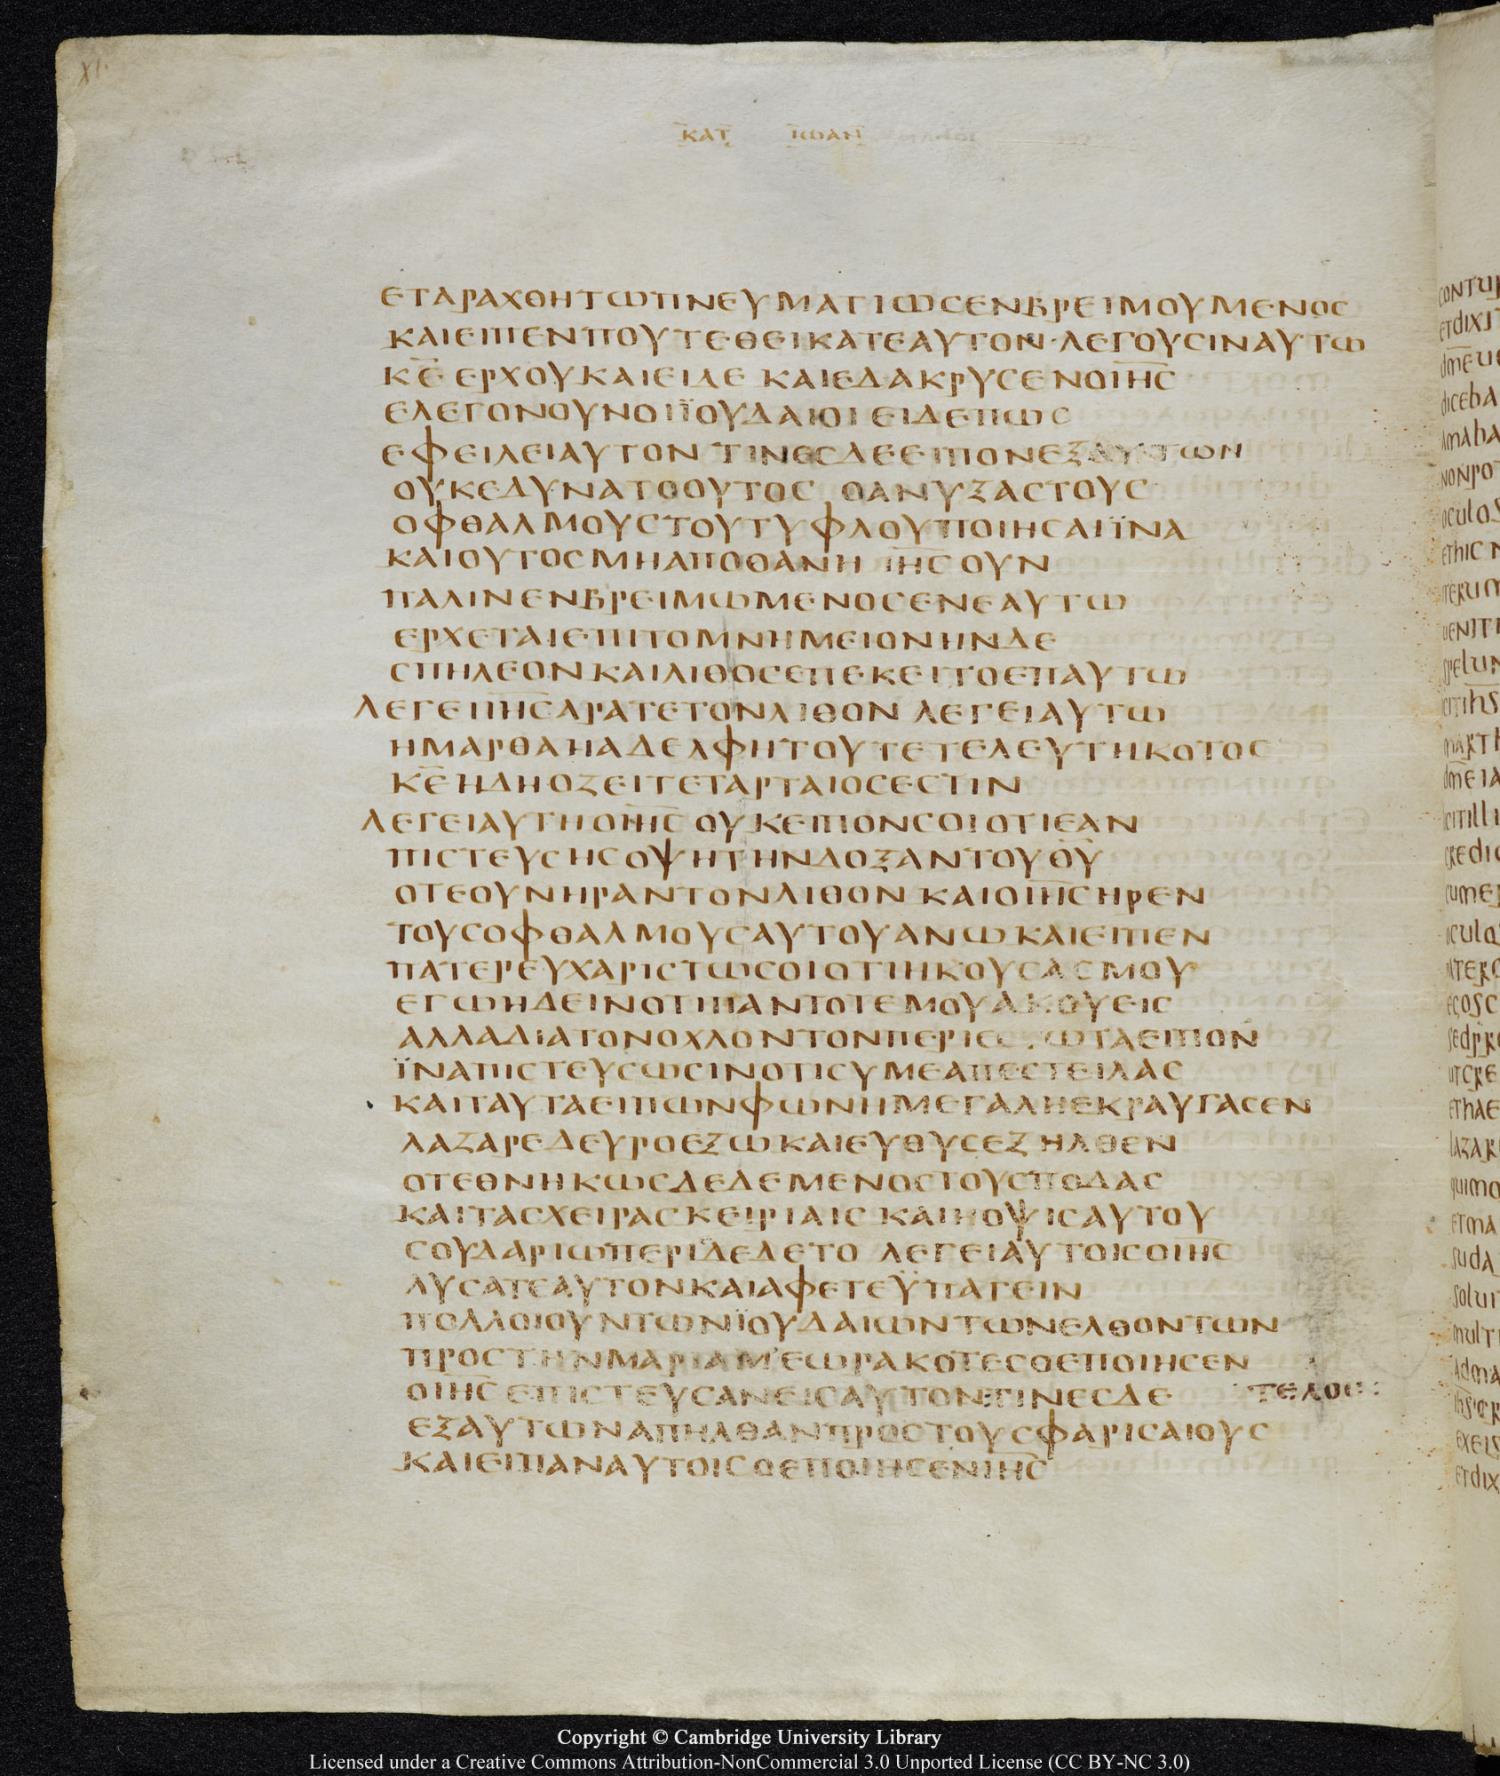 ΧΙ.
ΚΑΤ ΙΩΑΝ
ΕΤΑΡΑΧΘΗΤΩΠΝΕΥΜΑΤΙΩСΕΝΒΡΕΙΜΟΥΜΕΝΟС
ΚΑΙΕΙΠΕΝΠΟΥΤΕΘΕΙΚΑΤΕΑΥΤΟΝ·ΛΕΓΟΥСΙΝΑΥΤΩ
Κ̅Ε̅ ΕΡΧΟΥΚΑΙΕΙΔΕ ΚΑΙΕΔΑΚΡΥСΕΝΟΙ̅Η̅С̅
ΕΛΕΓΟΝΟΥΝΟΙΪΟΥΔΑΙΟΙ ΕΙΔΕΠΩС
ΕΦΕΙΛΕΙΑΥΤΟΝ ΤΙΝΕСΔΕΕΙΠΟΝΕΞΑΥΤΩΝ
ΟΥΚΕΔΥΝΑΤΟΟΥΤΟС ΟΑΝΥΞΑСΤΟΥС
ΟΦΘΑΛΜΟΥСΤΟΥΤΥΦΛΟΥΠΟΙΗСΑΙΪΝΑ
ΚΑΙΟΥΤΟСΜΗΑΠΟΘΑΝΗ Ι̅Η̅С̅ ΟΥΝ
ΠΑΛΙΝΕΝΒΡΕΙΜΩΜΕΝΟСΕΝΕΑΥΤΩ
ΕΡΧΕΤΑΙΕΠΙΤΟΜΝΗΜΕΙΟΝΗΝΔΕ
СΠΗΛΕΟΝΚΑΙΛΙΘΟСΕΠΕΚΕΙΤΟΕΠΑΥΤΩ
ΛΕΓΕΙΙ̅Η̅С̅ΑΡΑΤΕΤΟΝΛΙΘΟΝ ΛΕΓΕΙΑΥΤΩ
ΗΜΑΡΘΑΗΑΔΕΛΦΗΤΟΥΤΕΤΕΛΕΥΤΗΚΟΤΟС
Κ̅Ε̅ ΗΔΗΟΖΕΙΤΕΤΑΡΤΑΙΟСΕСΤΙΝ
ΛΕΓΕΙΑΥΤΗΟΙ̅Η̅С̅ ΟΥΚΕΙΠΟΝСΟΙΟΤΙΕΑΝ
ΠΙСΤΕΥСΗСΟΨΗΤΗΝΔΟΞΑΝΤΟΥΘ̅Υ̅
ΟΤΕΟΥΝΗΡΑΝΤΟΝΛΙΘΟΝ ΚΑΙΟΙ̅Η̅С̅ΗΡΕΝ
ΤΟΥСΟΦΘΑΛΜΟΥСΑΥΤΟΥΑΝΩΚΑΙΕΙΠΕΝ
ΠΑΤΕΡΕΥΧΑΡΙСΤΩСΟΙΟΤΙΗΚΟΥСΑСΜΟΥ
ΕΓΩΗΔΕΙΝΟΤΙΠΑΝΤΟΤΕΜΟΥΑΚΟΥΕΙС
ΑΛΛΑΔΙΑΤΟΝΟΧΛΟΝΤΟΝΠΕΡΙΕ ΩΤΑΕΙΠΟΝ
ΪΝΑΠΙСΤΕΥСΩСΙΝΟΤΙСΥΜΕΑΠΕСΤΕΙΛΑС
ΚΑΙΤΑΥΤΑΕΙΠΩΝΦΩΝΗΜΕΓΑΛΗΕΚΡΑΥΓΑСΕΝ
ΛΑΖΑΡΕΔΕΥΡΟΕΞΩΚΑΙΕΥΘΥСΕΞΗΛΘΕΝ
ΟΤΕΘΝΗΚΩСΔΕΔΕΜΕΝΟСΤΟΥСΠΟΔΑС
ΚΑΙΤΑСΧΕΙΡΑСΚΕΙΡΙΑΙС ΚΑΙΗΟΨΙСΑΥΤΟΥ
СΟΥΔΑΡΙΩΠΕΡΙΔΕΔΕΤΟ ΛΕΓΕΙΑΥΤΟΙСΟΙ̅Η̅С̅
ΛΥСΑΤΕΑΥΤΟΝΚΑΙΑΦΕΤΕΫΠΑΓΕΙΝ
ΠΟΛΛΟΙΟΥΝΤΩΝΪΟΥΔΑΙΩΝΤΩΝΕΛΘΟΝΤΩΝ
ΠΡΟСΤΗΝΜΑΡΙΑΜ'ΕΩΡΑΚΟΤΕСΟΕΠΟΙΗСΕΝ
ΟΙ̅Η̅С̅ ΕΠΙСΤΕΥСΑΝΕΙСΑΥΤΟΝ:ΤΙΝΕСΔΕ ΤΕΛΟС:
ΕΞΑΥΤΩΝΑΠΗΛΘΑΝΠΡΟСΤΟΥСΦΑΡΙСΑΙΟΥС
ΚΑΙΕΙΠΑΝΑΥΤΟΙСΟΕΠΟΙΗСΕΝΙ̅Η̅С̅
Copyright © Cambridge University Library
Licensed under a Creative Commons Attribution-NonCommercial 3.0 Unported License (CC BY-NC 3.0)